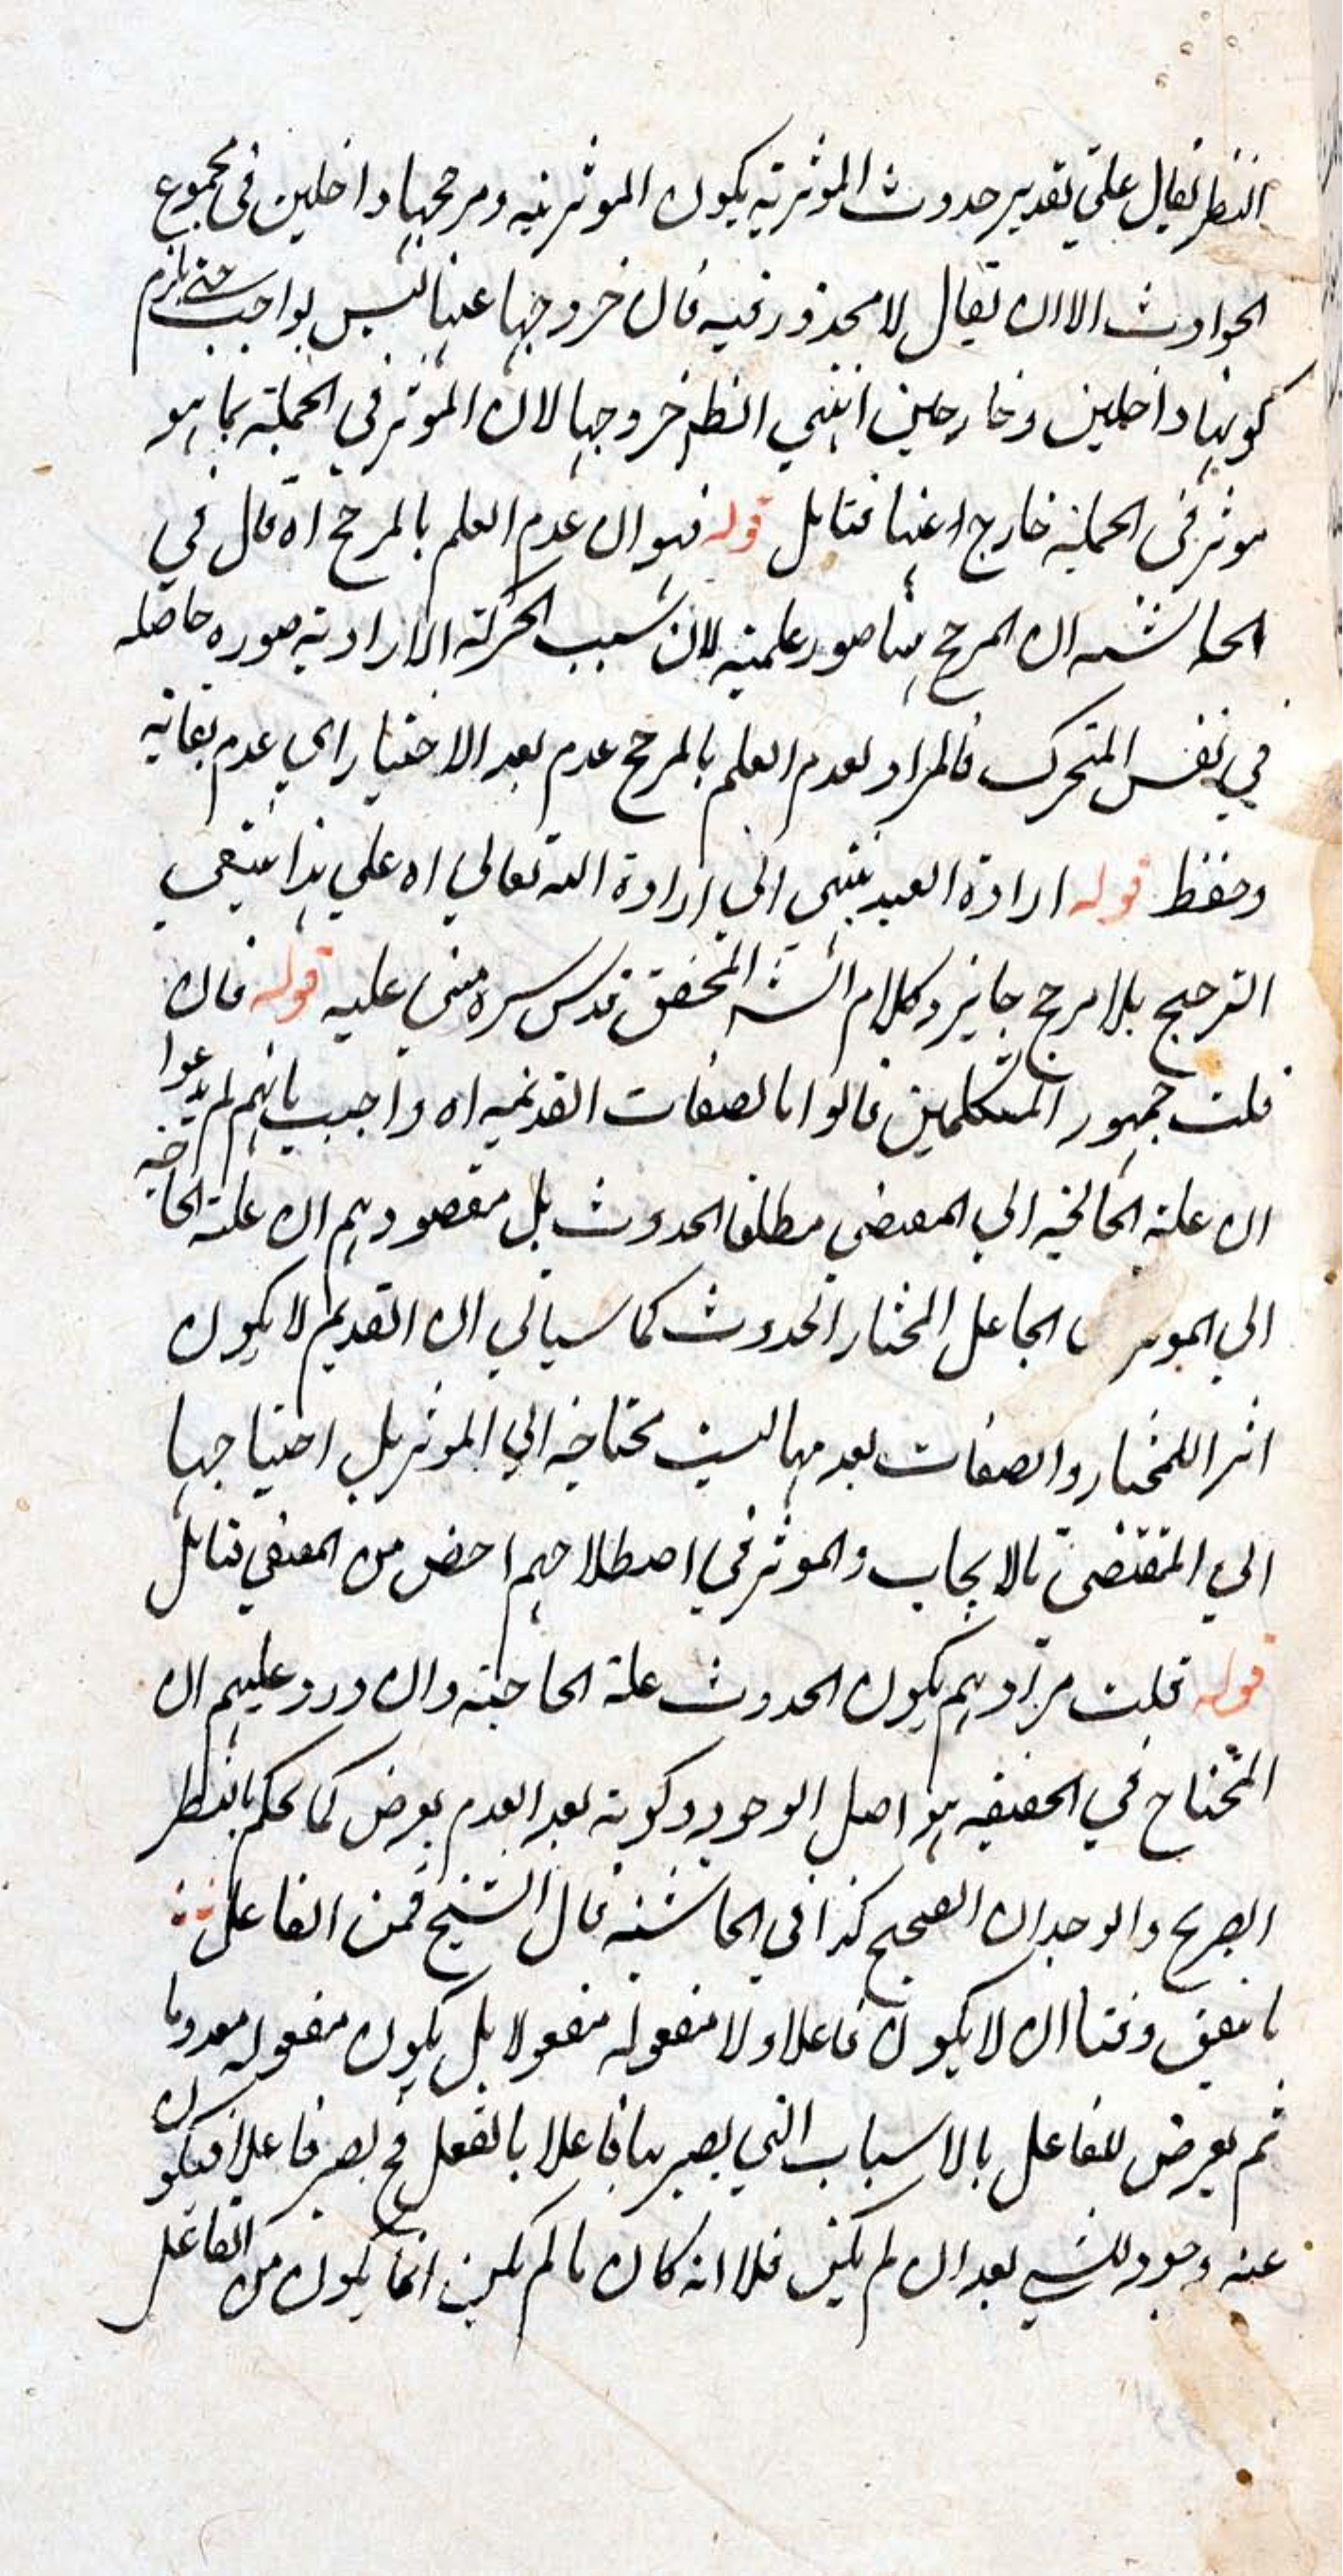 النظر يقال على تقدير حدوث المؤثرية يكون المؤثرية ومرجحها داخلين في مجموع
الحوادث الا ان يقال لا محذور فيه فان خروجها عنها ليس بواجب حتى يلزم
كونها داخلين وخارجين انتهى انظر خروجها لان المؤثر في الجملة بما هو
موثر في الجملة خارج عنها فتامل قوله فهو ان عدم العلم بالمرجح اه قال في
الحاشية ان المرجح هنا صور علمية لان سبب الحركة الارادية صورة حاصله
في نفس المتحرك فالمراد بعدم العلم بالمرجح عدم بعد الاختيار اي عدم بقائه
وحفظ قوله ارادة العبد ينتهي الى ارادة الله تعالى اه على هذا ينتفي
الترجيح بلا مرجح جايز وكلام الش المحقق قدس سره مبني عليه قوله فان
قلت جمهور المتكلمين قالوا بالصفات القديمه اه واجيب بانهم لم يدعوا
ان علة الحاجة الى المقتضي مطلقا الحدوث بل مقصودهم ان علة الحاجة
الى الموثر الجاعل المختار الحدوث كما سياتي ان القديم لا يكون
اثرا للمختار والصفات بعدمها ليست محتاجة الى الموثر بل احتياجها
الى المقتضى بالايجاب والموثر في اصطلاحهم اخص من المقتضي فتامل
قوله قلت مرادهم بكون الحدوث علة الحاجة وان ورد عليهم ان
المحتاج في الحقيقه هو اصل الوجود وكونه بعد العدم بعرض كما يحكم بالنظر
الصريح والوجدان الصحيح كذا في الحاشية قال الشيخ فمن الفاعل
ما يتفق وقتا ان لا يكون فاعلا ولا مفعوله مفعولا بل يكون مفعوله معدوما
ثم يعرض للفاعل بالاسباب التي يصير بها فاعلا بالفعل فح يصير فاعلا فيكون
عنه وجود للشي بعد ان لم يكن فلا انه كان ما لم يكن انما يكون من الفاعل